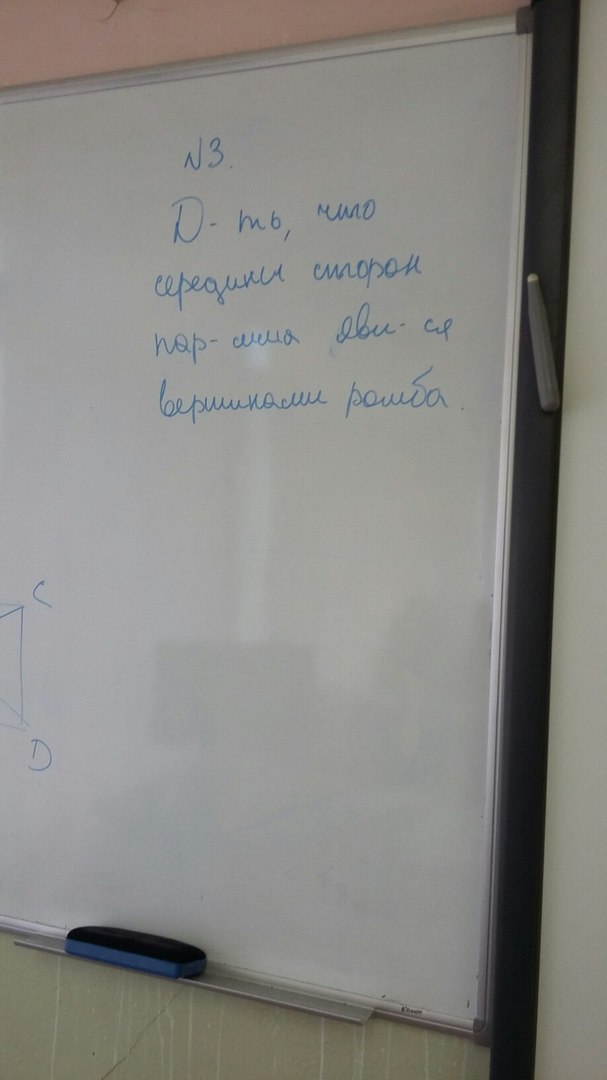 N3.
D-ть, что
середины сторон
пар-мма явл-ся
вершинами ромба.
C
D